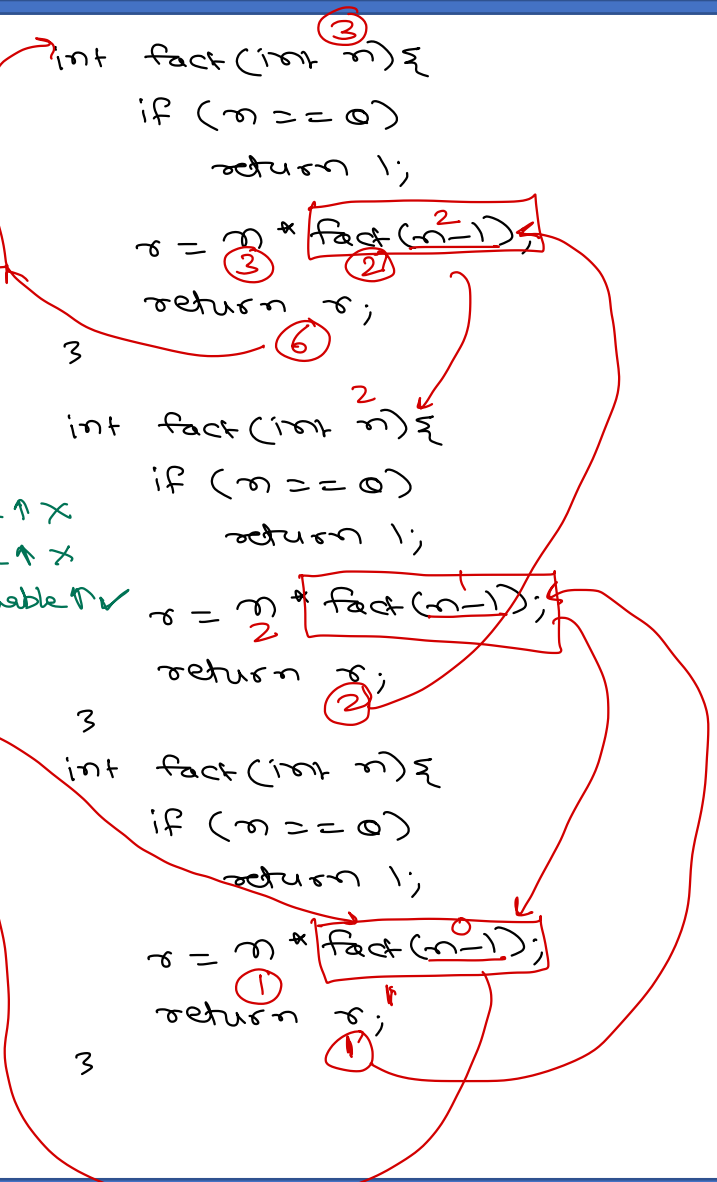 3
int fact(int n){
if (n == 0)
return 1;
2
r = n * fact(n-1);
3 2
return r;
6
}
2
int fact(int n){
if (n == 0)
↑ X
return 1;
↑ X
1
able ↑ ✓
r = n * fact(n-1);
2
return r;
2
}
int fact(int n){
if (n == 0)
return 1;
0
r = n * fact(n-1);
1 1
return r;
1
}